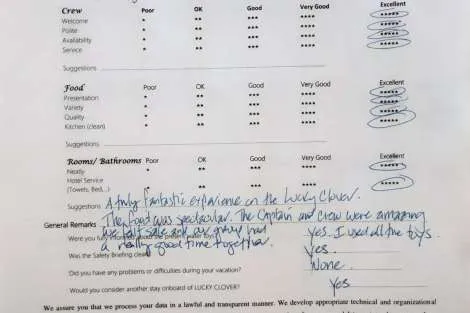 Crew Poor OK Good Very Good Excellent
Welcome * ** *** **** *****
Polite * ** *** **** *****
Availability * ** *** **** *****
Service * ** *** **** *****
Suggestions
Food Poor OK Good Very Good Excellent
Presentation * ** *** **** *****
Variety * ** *** **** *****
Quality * ** *** **** *****
Kitchen (clean) * ** *** **** *****
Suggestions:
Rooms/ Bathrooms Poor OK Good Very Good Excellent
Neatly * ** *** **** *****
Hotel Service
(Towels, Bed,..) * ** *** **** *****
Suggestions A truly fantastic experience on the Lucky Clover.
The food was spectacular. The Captain and Crew were amazing
General Remarks
We felt safe and our group had
Were you fully informed about the present water toys? Yes. I used all the toys.
a really good time together.
Was the Safety Briefing clear? Yes.
Did you have any problems or difficulties during your vacation? None.
Would you consider another stay onboard of LUCKY CLOVER? Yes
We assure you that we process your data in a lawful and transparent manner. We develop appropriate technical and organizational